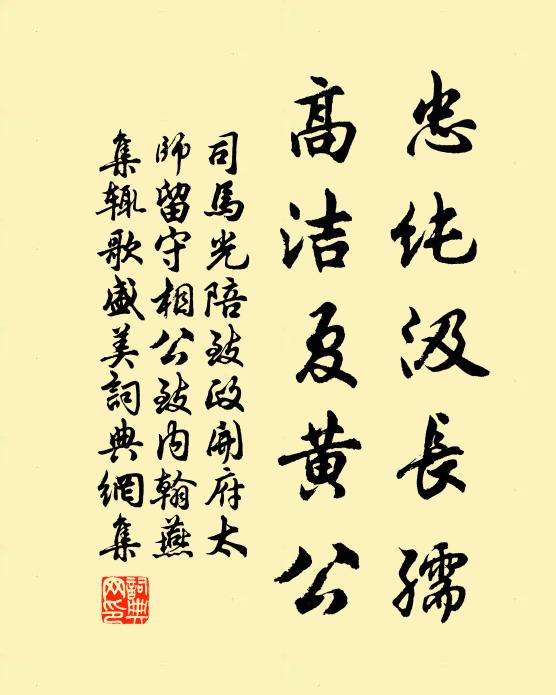 忠纯汲长孺
高洁夏黄公
司馬光陪致政開府太
師留守相公致内翰燕
集輒歌盛美詞典網集
詞典网印